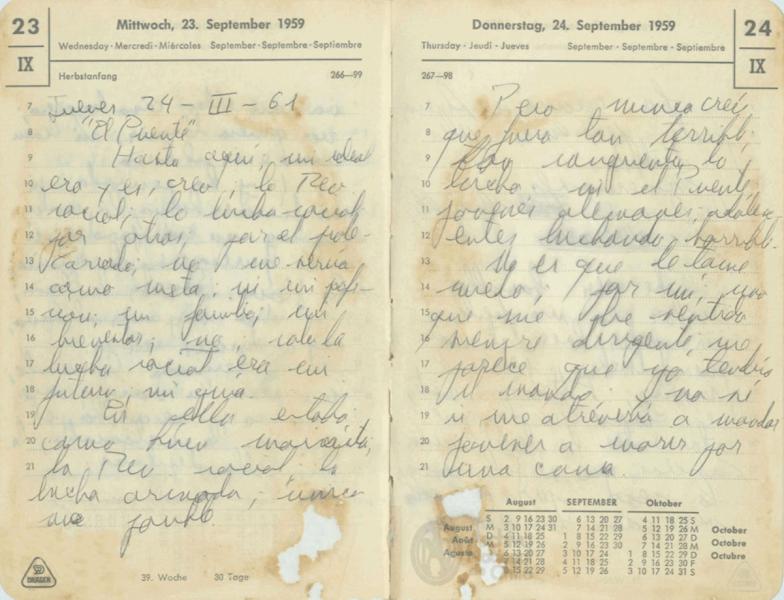 23
IX
Mittwoch, 23. September 1959
Wednesday · Mercredi · Miércoles September · Septembre · Septiembre
Herbstanfang 266—99
7 Jueves 24 - III - 61
8 "El Puente"
9 Hasta aquí, mi ideal
10 era y es, creo, la Rev
11 social; la lucha social
12 por otros, por el prole-
13 tariado; no me servía
14 como meta, ni mi profe-
15 mi familia; mi
16 bienestar; no, sólo la
17 lucha social era mi
18 futuro, mi
19 En ella estaba,
20 como buen marxista,
21 la Rev social: la
lucha armada;
39. Woche 30 Tage
DRÄGER
24
IX
Donnerstag, 24. September 1959
Thursday · Jeudi · Jueves September · Septembre · Septiembre
267—98
7 Pero nunca creí
8 que fuera tan terrible,
9 tan sangrienta la
10 lucha; vi el Puente,
11 jóvenes alemanes, adolesc
12 entes luchando horribl.
13 Y es que le tomé
14 miedo, por mí, uno
15 que me he sentido
16 siempre dirigente, me
17 parece que yo tendría
18 y no sé
19 si me atrevería a mandar
20 jóvenes a morir por
21 una causa.
August SEPTEMBER Oktober
S 2 9 16 23 30 6 13 20 27 4 11 18 25 S
August M 3 10 17 24 31 7 14 21 28 5 12 19 26 M October
Août D 4 11 18 25 1 8 15 22 29 6 13 20 27 D Octobre
M 5 12 19 26 2 9 16 23 30 7 14 21 28 M
Agosto 6 13 20 27 3 10 17 24 1 8 15 22 29 D Octubre
7 14 21 28 4 11 18 25 2 9 16 23 30 F
8 15 22 29 5 12 19 26 3 10 17 24 31 S